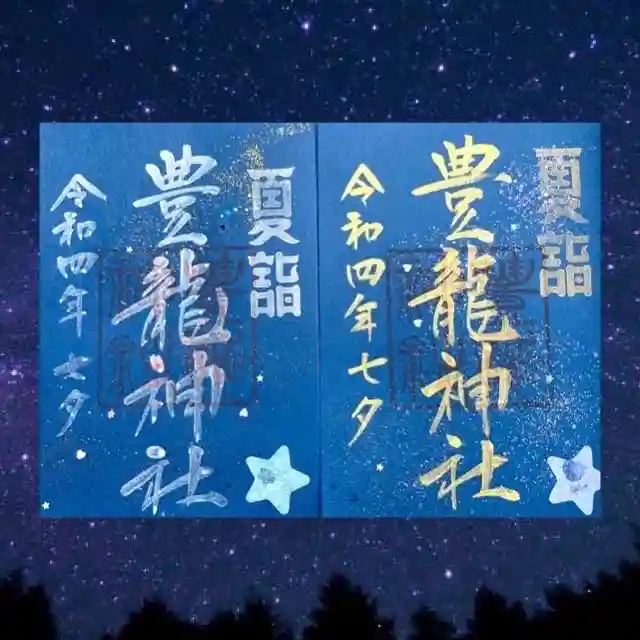 夏詣
豊龍神社
令和四年七夕
夏詣
豊龍神社
令和四年七夕